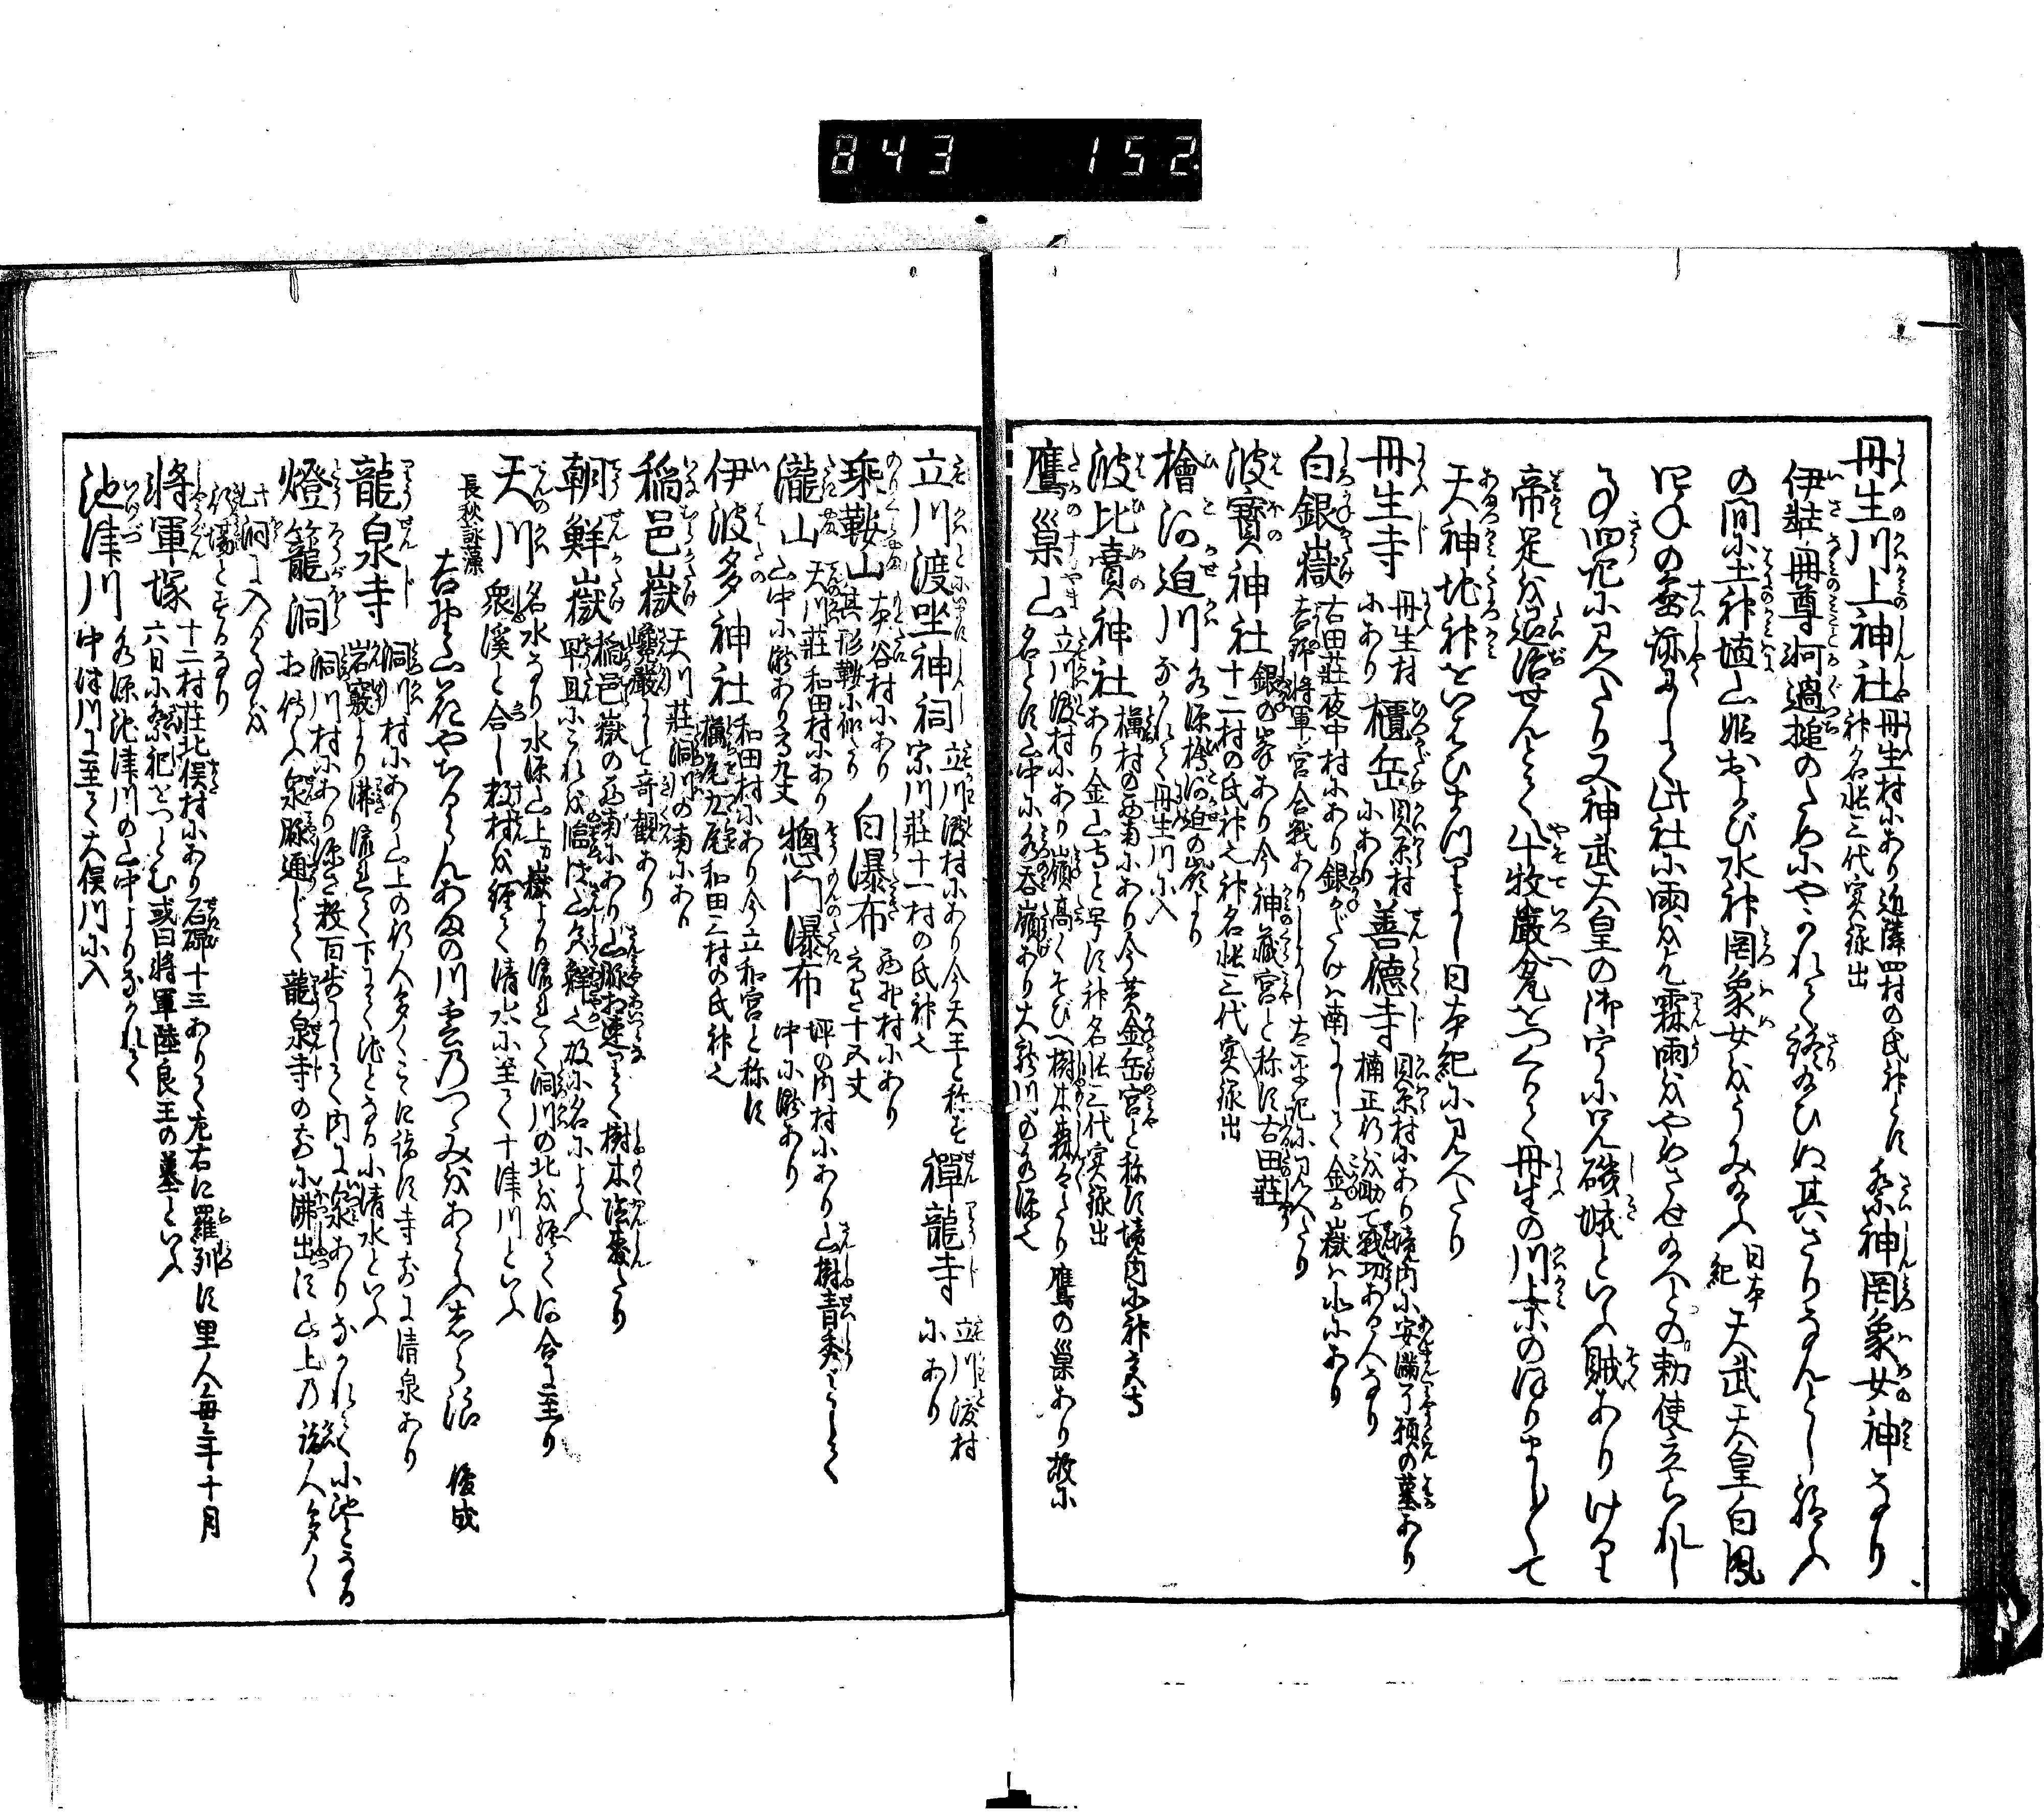 843 152
丹生川上神社 丹生村にあり近隣四村の氏神とす
神名帳三代実録出
祭神罔象女神なり
伊弉冊尊軻遇槌のためにやかれて終給ひぬ其さりなんとし給ふ
の間に土神埴山姫および水神罔象女をうみ給ふ 日本紀 天武天皇白鳳
此社に雨を乞霖雨をやめさせ給へるの勅使立られし
見へたり又神武天皇の御宇に兄磯城といふ賊ありけり
帝是を退治せんとて八十牧厳瓮をつくりて丹生の川上にのぼりましまして
天神地祇をいはひまつりまし日本紀に見へたり
丹生寺 丹生村にあり
櫃岳 貝原村にあり
善徳寺 貝原村にあり境内に安満了願の墓あり
楠正行を助て戦功ある人なり
白銀嶽 古田荘夜中村にあり銀がだけは南にして金が嶽は北にあり
吉野将軍宮合戦ありしよし太平記に見へたり
波寶神社 銀の峯にあり今神蔵宮と称す古田荘
十二村の氏神也神名帳三代実録出
檜河迫川 水源檜河迫の嶺より
ながれて丹生川に入
波比賣神社 今黄金岳宮と称す境内に神宮寺
あり金山寺と号す神名帳三代実録出
鷹巣山 立川渡村にあり嶺高くそびへ樹木森々たり鷹の巣あり故に
名とす山中に水呑嶺あり
立川渡坐神祠 立川渡村にあり今天王と称す
宗川荘十一村の氏神也
禪龍寺 立川渡村にあり
乘鞍山 本谷村にあり
其形鞍に似たり
白瀑布
高さ十五丈
瀧山 天川荘和田村にあり
山中に瀧あり高九丈
坪の内村にあり山樹青秀にして
中に瀧あり
伊波多神社 和田村にあり今立和宮と称す
九尾和田三村の氏神也
稲邑嶽 天川荘洞川の南にあり
巉巌にして奇観あり
朝鮮嶽 稲邑嶽の西南にあり山脈相連りて樹木陰森たり
早旦にこれを臨ば
故に名によぶ
天川 名水なり水源山上が嶽より流れて洞川の北を経て河合に至り
衆溪と合し数村を経て清水に至て十津川といふ
長秋詠藻
吉野山花やちるらんあまの川雲のつゝみをあらふしら浪 俊成
龍泉寺 洞川村にあり山上の行人多くこゝに詣す寺前に清泉あり
岩竅より沸流れて下にて池となる小清水といふ
燈籠洞 洞川村にあり深さ数百歩にして内に泉ありながれて小池となる
相伝ふ泉脈通じて龍泉寺の前に沸出す山上の詣人多く
此洞に入るを
行場とするなり
将軍塚 十二村荘北俣村にあり石碑十三ありて左右に羅列す里人毎年十月
六日に祭祀をつとむ或曰将軍陸良王の墓といふ
池津川 水源池津川の山中よりながれて
中津川に至て大俣川に入